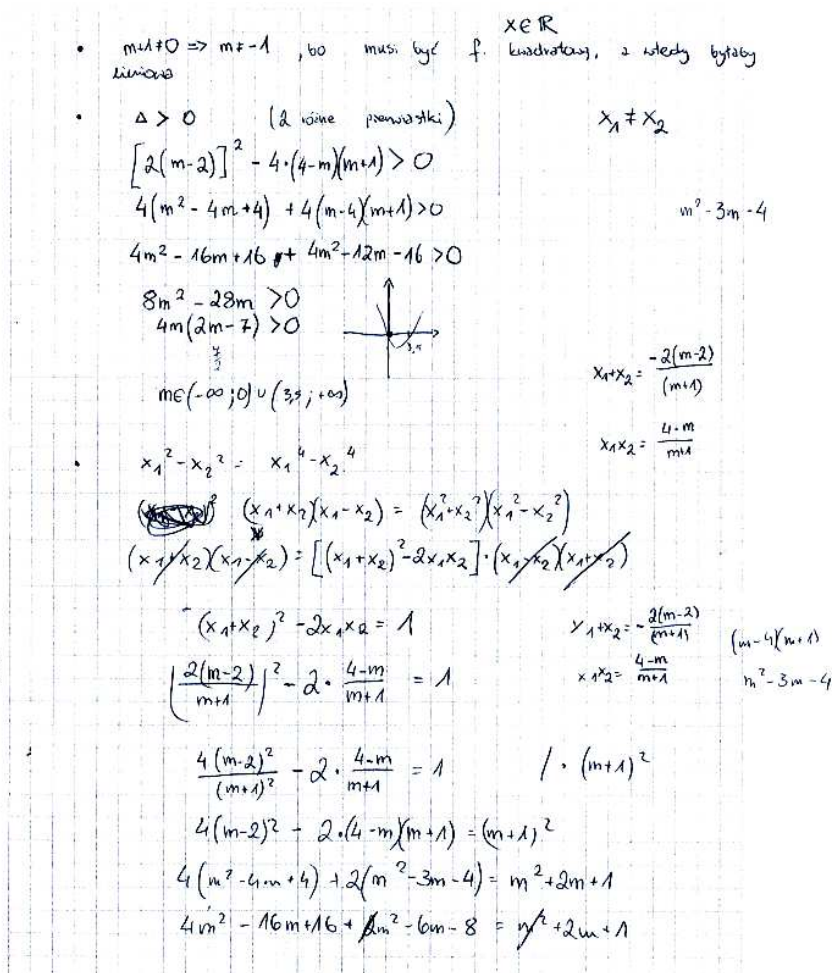 x∈ℝ
• m+1≠0 => m≠-1 , bo musi być f. kwadratową, a wtedy byłaby
liniowa
• Δ > 0 (2 różne pierwiastki) x₁ ≠ x₂
[2(m-2)]² - 4·(4-m)(m+1) > 0
4(m² - 4m+4) + 4(m-4)(m+1)>0 m²-3m-4
4m² - 16m+16 + 4m²-12m-16 >0
8m² - 28m >0
4m(2m-7) >0
7/2 3,5
m∈(-∞;0)∪(3,5;+∞)
x₁+x₂= -2(m-2)/(m+1)
x₁x₂= 4-m/m+1
• x₁²-x₂² = x₁⁴-x₂⁴
(x₁+x₂)(x₁-x₂) = (x₁²+x₂²)(x₁²-x₂²)
(x₁+x₂)(x₁-x₂) = [(x₁+x₂)²-2x₁x₂]·(x₁-x₂)(x₁+x₂)
(x₁+x₂)² -2x₁x₂ = 1 x₁+x₂=-2(m-2)/(m+1) (m-4)(m+1)
(2(m-2)/m+1)² - 2· 4-m/m+1 = 1 x₁x₂= 4-m/m+1 m²-3m-4
4(m-2)²/(m+1)² - 2· 4-m/m+1 = 1 /·(m+1)²
4(m-2)² - 2·(4-m)(m+1) = (m+1)²
4(m²-4m+4) +2(m²-3m-4) = m²+2m+1
4m² - 16m+16 + 2m²-6m-8 = m²+2m+1